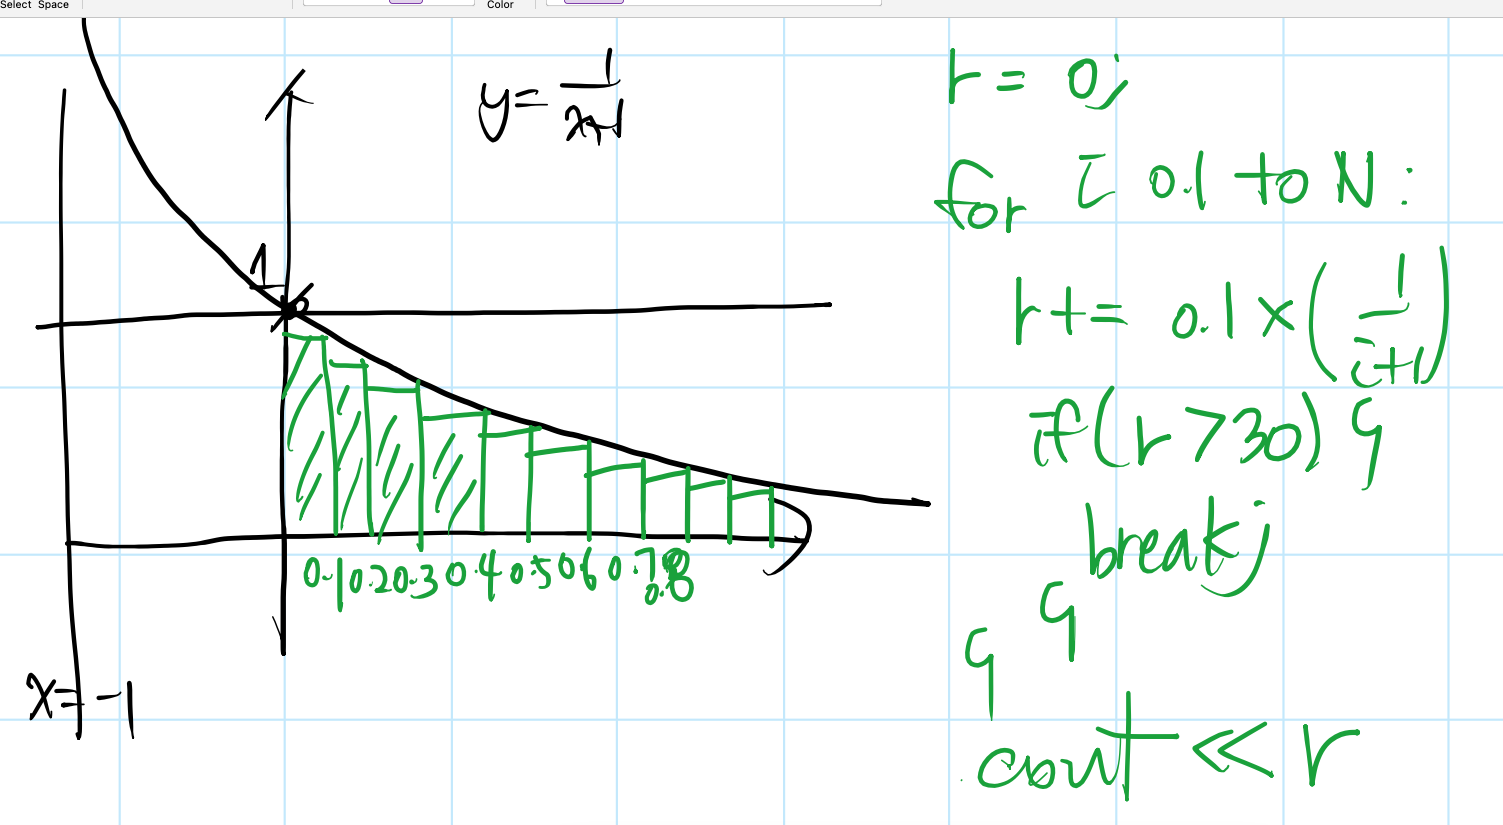 Select Space
Color
y = 1/(x+1)
1
0
0.1 0.2 0.3 0.4 0.5 0.6 0.7 0.8
x = -1
r = 0;
for i 0.1 to N:
r += 0.1 × (1/(i+1))
if (r > 30) {
break;
}
}
cout << r